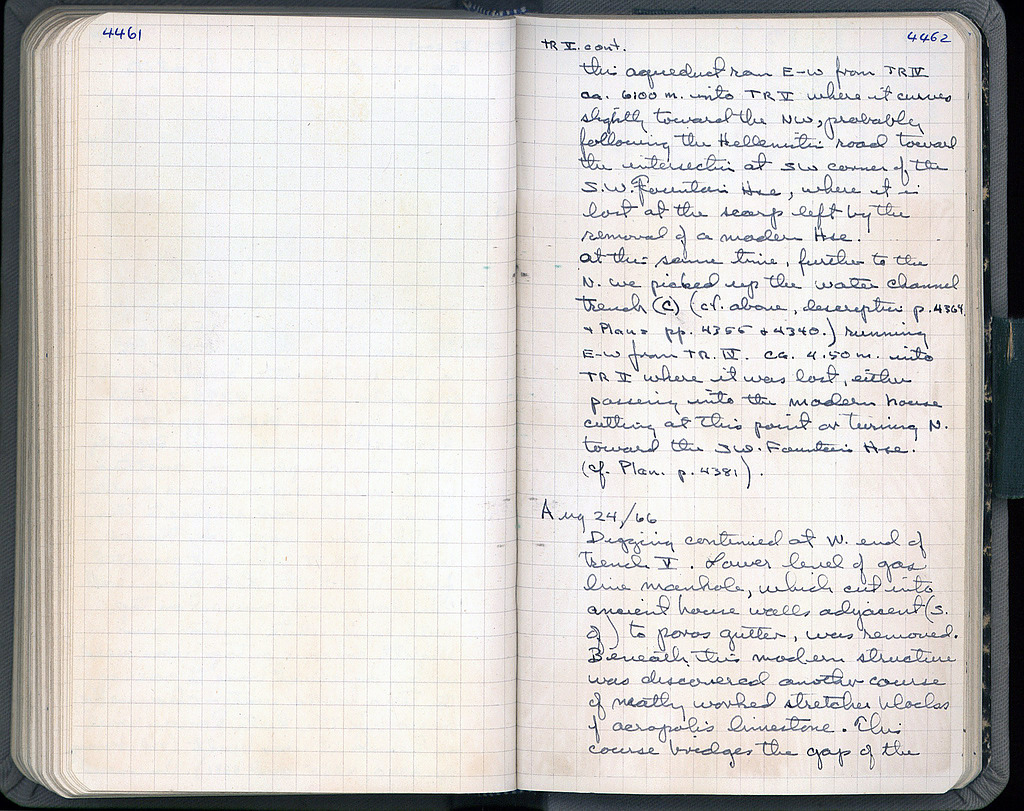 4461
4462
TR V. cont.
this aqueduct ran E-W from TR IV
ca. 6.00 m. into TR V where it curves
slightly toward the NW, probably
following the Hellenistic road toward
the intersection at SW corner of the
S.W. Fountain Hse, where it is
lost at the scarp left by the
removal of a modern Hse.
At the same time, further to the
N. we picked up the water channel
trench (C) (cf. above, description p. 4364,
+ Plans pp. 4355 + 4340.) running
E-W from TR. IV. ca. 4.50 m. into
TR V where it was lost, either
passing into the modern house
cutting at this point or turning N.
toward the SW. Fountain Hse.
(cf. Plan. p. 4381).
Aug 24/66
Digging continued at W. end of
trench V. Lower level of gas
line manhole, which cut into
ancient house walls adjacent (S.
of) to poros gutter, was removed.
Beneath this modern structure
was discovered another course
of neatly worked stretcher blocks
of acropolis limestone. This
course bridges the gap of the